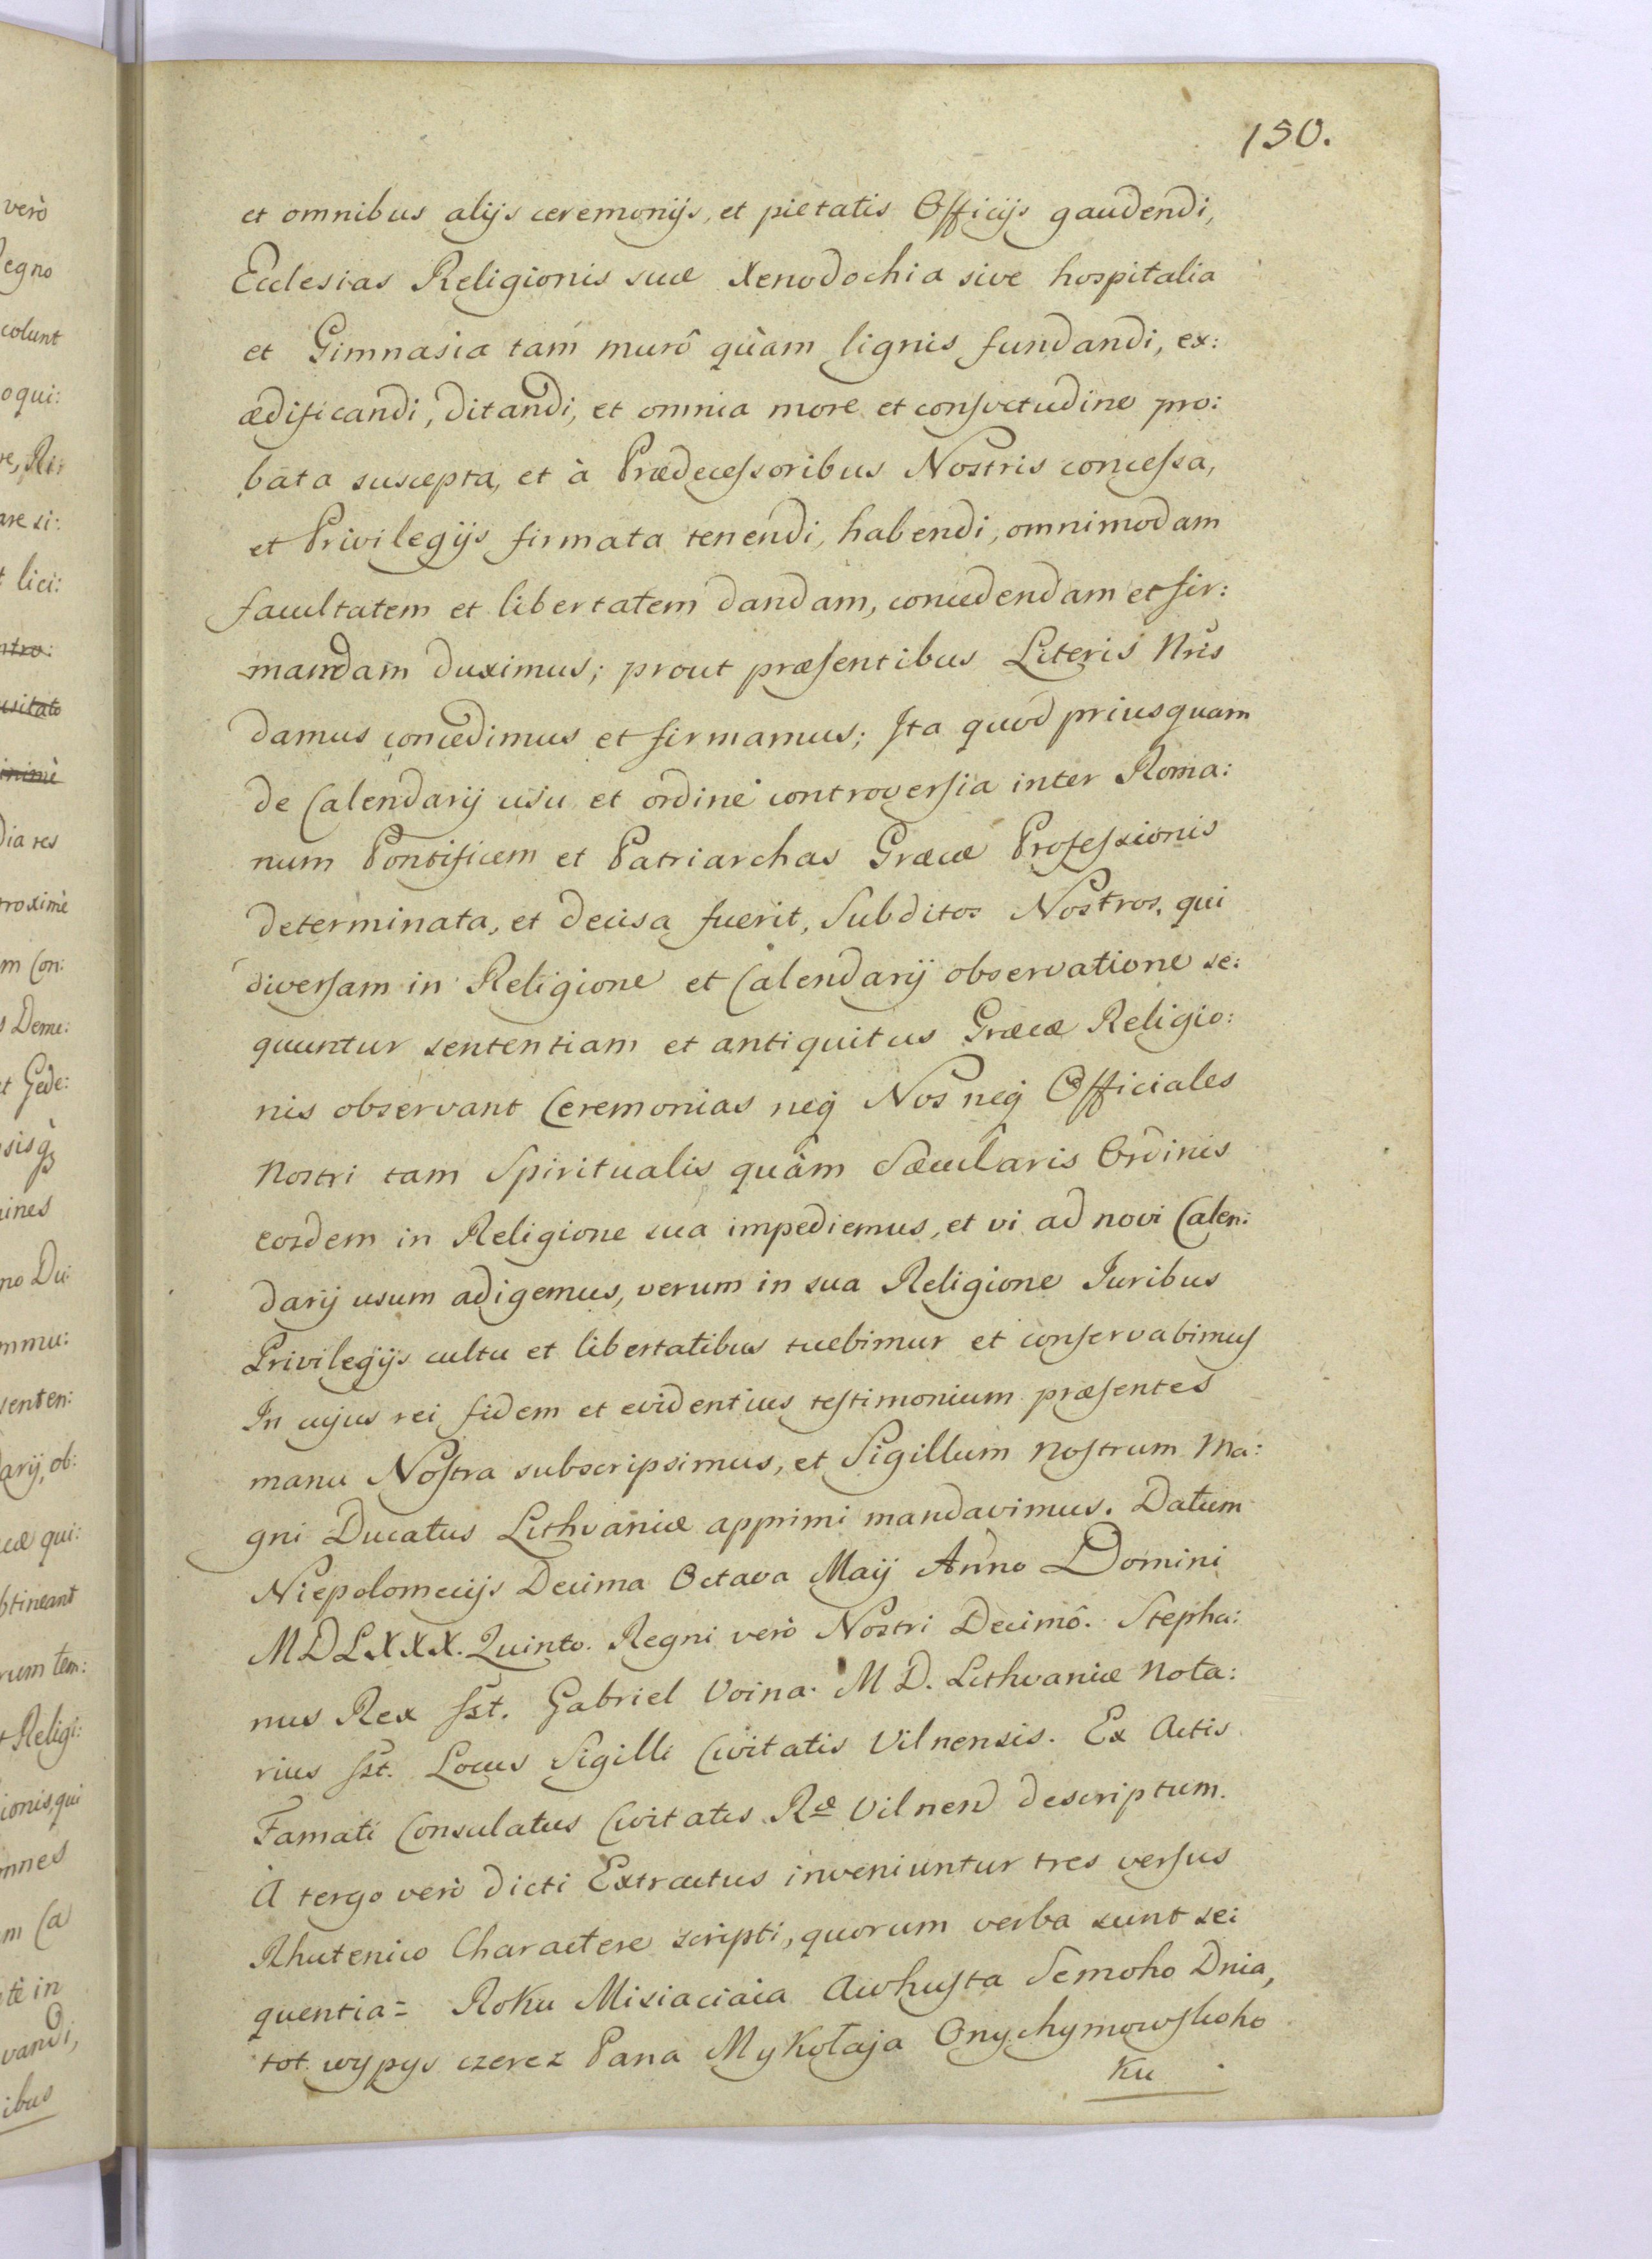 150.
et omnibus alijs ceremonijs, et pietatis Officijs gaudendi,
Ecclesias Religionis suæ Xenodochia sive hospitalia
et Gimnasia tam murô quàm lignis fundandi, ex:
ædificandi, ditandi, et omnia more et consvetudine pro:
bata suscepta, et à Prædecessoribus Nostris concessa,
et Privilegijs firmata tenendi, habendi, omnimodam
facultatem et libertatem dandam, concedendam et fir:
mandam duximus; prout præsentibus Literis Nris
damus concedimus et firmamus; Ita quod priusquam
de Calendarij usu et ordine controversia inter Roma:
num Pontificem et Patriarchas Græcæ Professionis
determinata, et decisa fuerit, Subditos Nostros, qui
diversam in Religione et Calendarij observatione se:
quuntur sententiam et antiquitus Græcæ Religio:
nis observant Ceremonias neq Nos neq Officiales
Nostri tam Spiritualis quàm Sæcularis Ordinis
eosdem in Religione sua impediemus, et vi ad novi Calen:
darij usum adigemus, verum in sua Religione Iuribus
Privilegijs cultu et libertatibus tuebimur et conservabimus
In cujus rei fidem et evidentius testimonium præsentes
manu Nostra subscripsimus, et Sigillum Nostrum Ma:
gni Ducatus Lithvaniæ apprimi mandavimus. Datum
Niepolomecijs Decima Octava Maij Anno Domini
MDLXXX. Quinto. Regni verò Nostri Decimô. Stepha:
nus Rex sst. Gabriel Voina. M D. Lithvaniæ Nota:
rius sst. Locus Sigilli Civitatis Vilnensis. Ex Actis
Famati Consulatus Civitatis Ræ Vilnen descriptum.
A tergo verò dicti Extractus inveniuntur tres versus
Rhutenico Charactere scripti, quorum verba sunt se:
quentia= Roku Misiaciaia Awhusta Semoho Dnia,
tot wypys czerez Pana Mykołaja Onychymowskoho
Ku
verò
egno
colunt
oqui:
lici:
ntro:
usitato
inimè
dia res
roximè
m Con:
Deme:
et Gede:
ines
no Du:
mmu:
senten:
darij, ob:
qui:
btineant
rum tem:
Religi:
ionis, qui
mnes
m Ca
tè in
vandi,
ibus